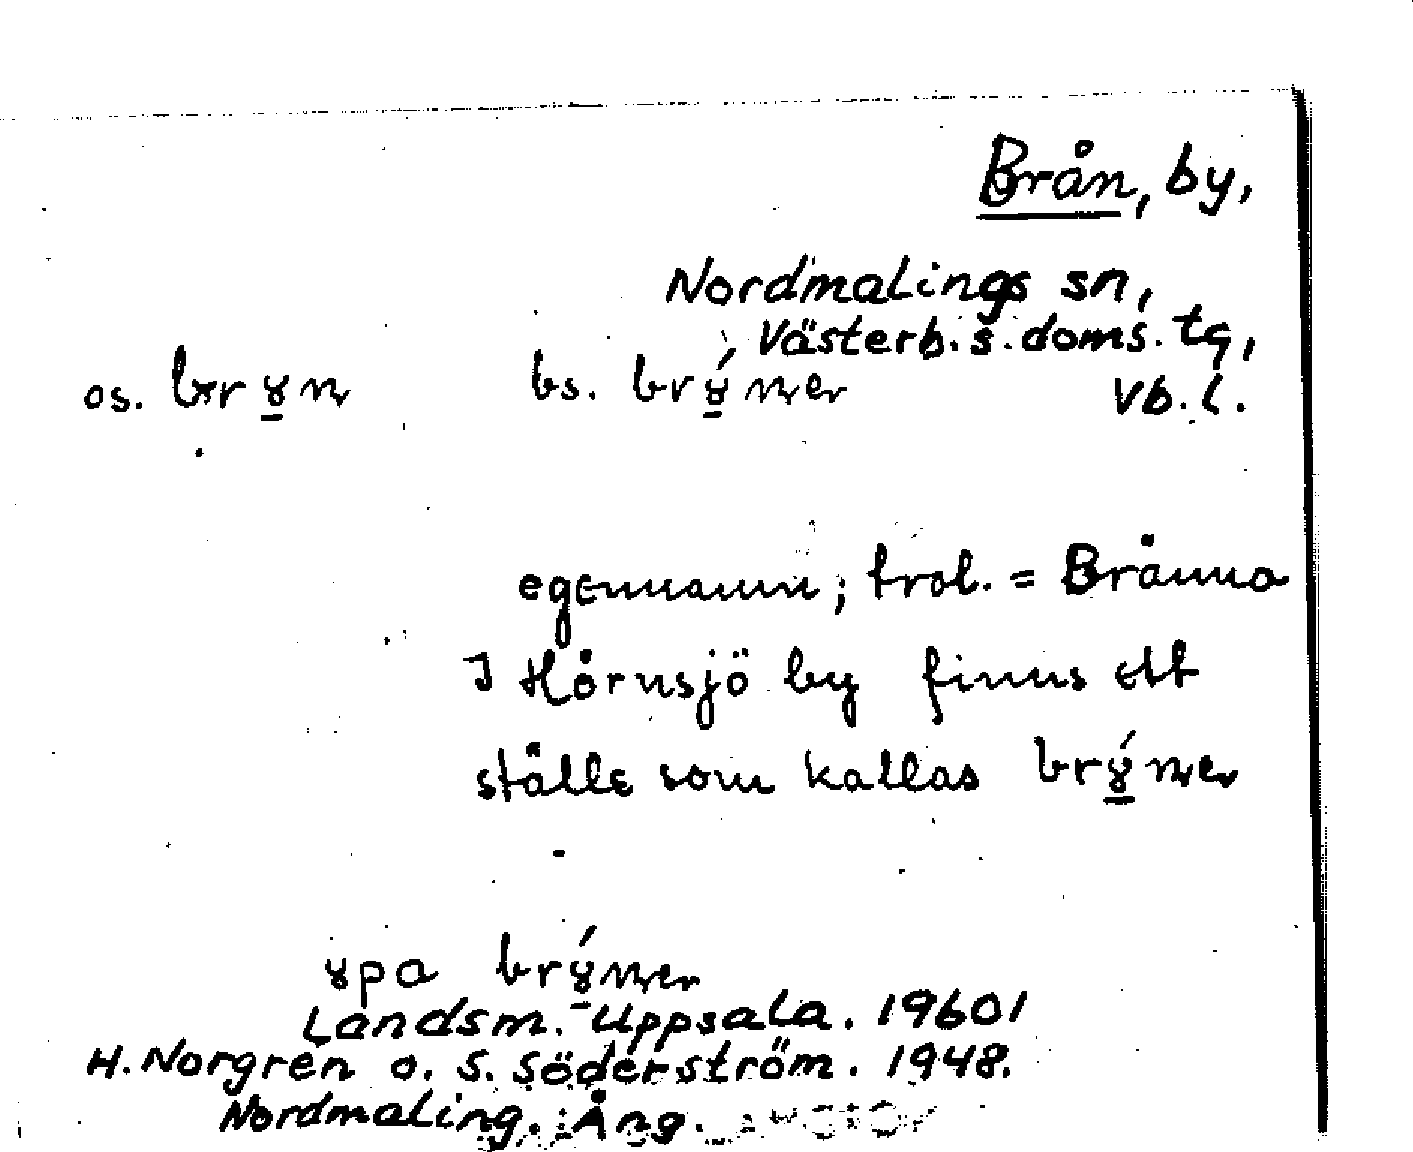 Brån, by,
Nordmalings sn,
Västerb. s. doms. tg,
os. brɣn bs. brɣ́ner Vb. l.
egennamn; trol. = Brånna
I Hörnsjö by finns ett
ställe som kallas brɣ́ner
ɣpa brɣ́ner
Landsm. Uppsala. 19601
H. Norgren o. S. Söderström. 1948.
Nordmaling. Ång.